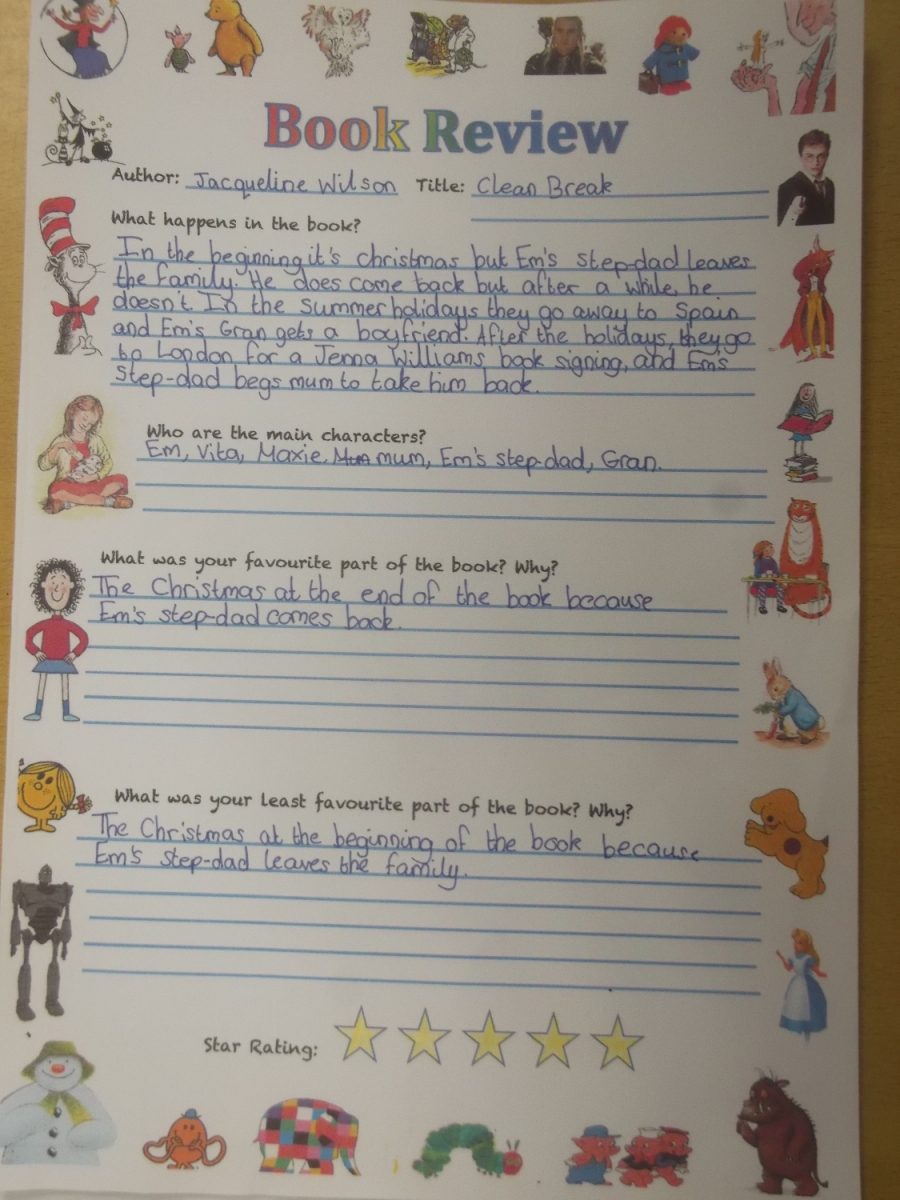 Book Review
Author: Jacqueline Wilson Title: Clean Break
What happens in the book?
In the beginning it's christmas but Em's step-dad leaves
the family. He does come back but after a while he
doesn't. In the summer holidays they go away to Spain
and Em's Gran gets a boyfriend. After the holidays, they go
to London for a Jenna Williams book signing, and Em's
step-dad begs mum to take him back.
Who are the main characters?
Em, Vita, Maxie, mum, Em's step-dad, Gran.
What was your favourite part of the book? Why?
The Christmas at the end of the book because
Em's step-dad comes back.
What was your least favourite part of the book? Why?
The Christmas at the beginning of the book because
Em's step-dad leaves the family.
Star Rating: